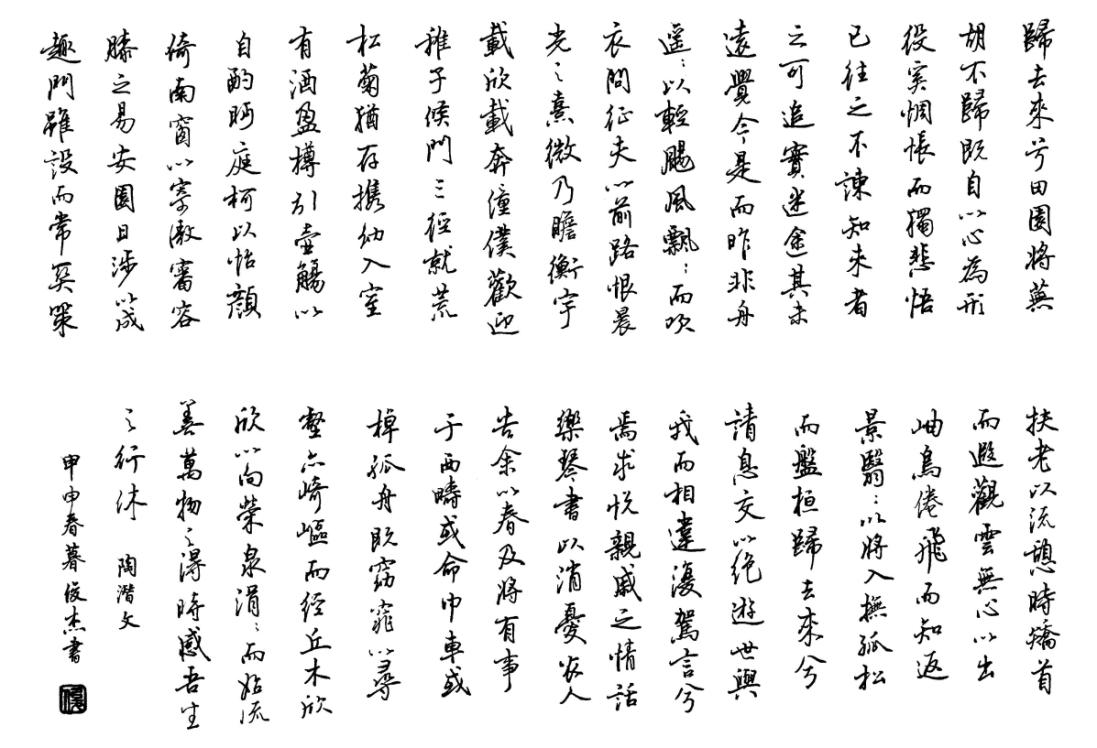 歸去來兮田園將蕪
胡不歸既自以心為形
役奚惆悵而獨悲悟
已往之不諫知来者
之可追實迷途其未
遠覺今是而昨非舟
遥〻以輕颺風飄〻而吹
衣問征夫以前路恨晨
光之熹微乃瞻衡宇
載欣載奔僮僕歡迎
稚子候門三徑就荒
松菊猶存携幼入室
有酒盈樽引壺觴以
自酌眄庭柯以怡顏
倚南窗以寄傲審容
膝之易安園日涉以成
趣門雖設而常關策
扶老以流憩時矯首
而遐觀雲無心以出
岫鳥倦飛而知返
景翳〻以將入撫孤松
而盤桓歸去来兮
請息交以絶遊世與
我而相違復駕言兮
焉求悅親戚之情話
樂琴書以消憂農人
告余以春及將有事
于西疇或命巾車或
棹孤舟既窈窕以尋
壑亦崎嶇而经丘木欣
欣以向榮泉涓〻而始流
善萬物之得時感吾生
之行休 陶潛文
甲申春暮俊杰書